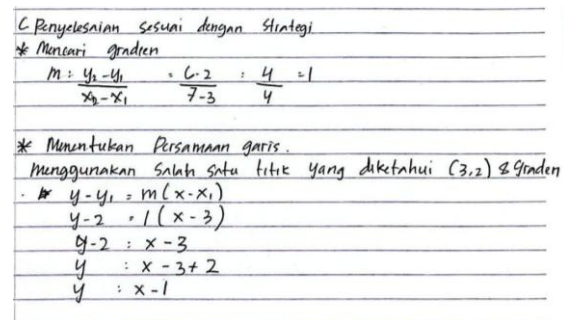 C Penyelesaian sesuai dengan Strategi
* Mencari gradien
m : y₂-y₁ / x₂-x₁ = 6-2 / 7-3 : 4 / 4 = 1
* Menentukan Persamaan garis.
Menggunakan Salah satu titik yang diketahui (3,2) & Graden
y-y₁ = m(x-x₁)
y-2 = 1(x-3)
y-2 : x-3
y : x-3+2
y : x-1